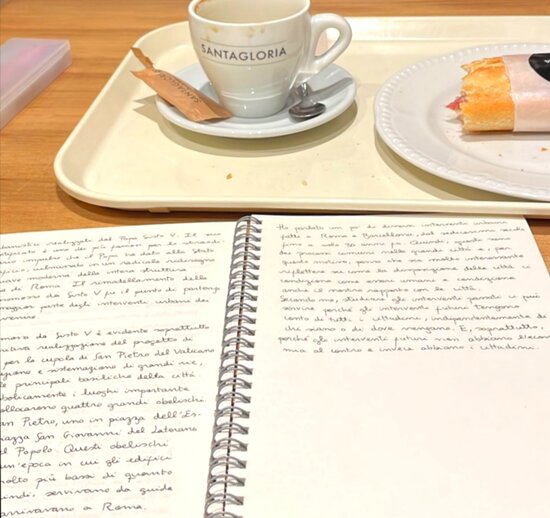 SANTAGLORIA
SANTAGLORIA
realizzate dal Papa Sisto V. Il suo
è uno dei più famosi per lo straordi-
impulso che il Papa ha dato allo Stato
radicale ridisegno
della intera struttura
di Roma. Il rimodellamento della
Sisto V fu il punto di partenza
maggior parte degli interventi urbani dei
Sisto V è evidente soprattutto
realizzazione del progetto di
per la cupola di San Pietro del Vaticano
e sistemazione di grandi vie,
le principali basiliche della città
i luoghi importante
collocarono quattro grandi obelischi
San Pietro, uno in piazza dell'Es-
piazza San Giovanni del Laterano
del Popolo. Questi obelischi
un'epoca in cui gli edifici
molto più bassi di quanto
quindi, servivano da guida
arrivavano a Roma.
Ho parlato un po' di diversi interventi urbani
fatti a Roma e Barcellona, dal sedicesimo secolo
fino a solo 30 anni fa. Quindi, questi sono
dei processi comuni nelle grandi città e, per
questo motivo, penso che sia molto interessante
riflettere su come la disposizione delle città ci
condiziona come esseri umani e condiziona
anche il nostro rapporto con le città.
Secondo me, studiare gli interventi passati ci può
servire perché gli interventi futuri tengano
conto di tutti i cittadini, indipendentemente da
chi siano o di dove vengano. E, soprattutto,
perché gli interventi futuri non abbiano l'econo-
mia al centro e invece abbiano i cittadini.